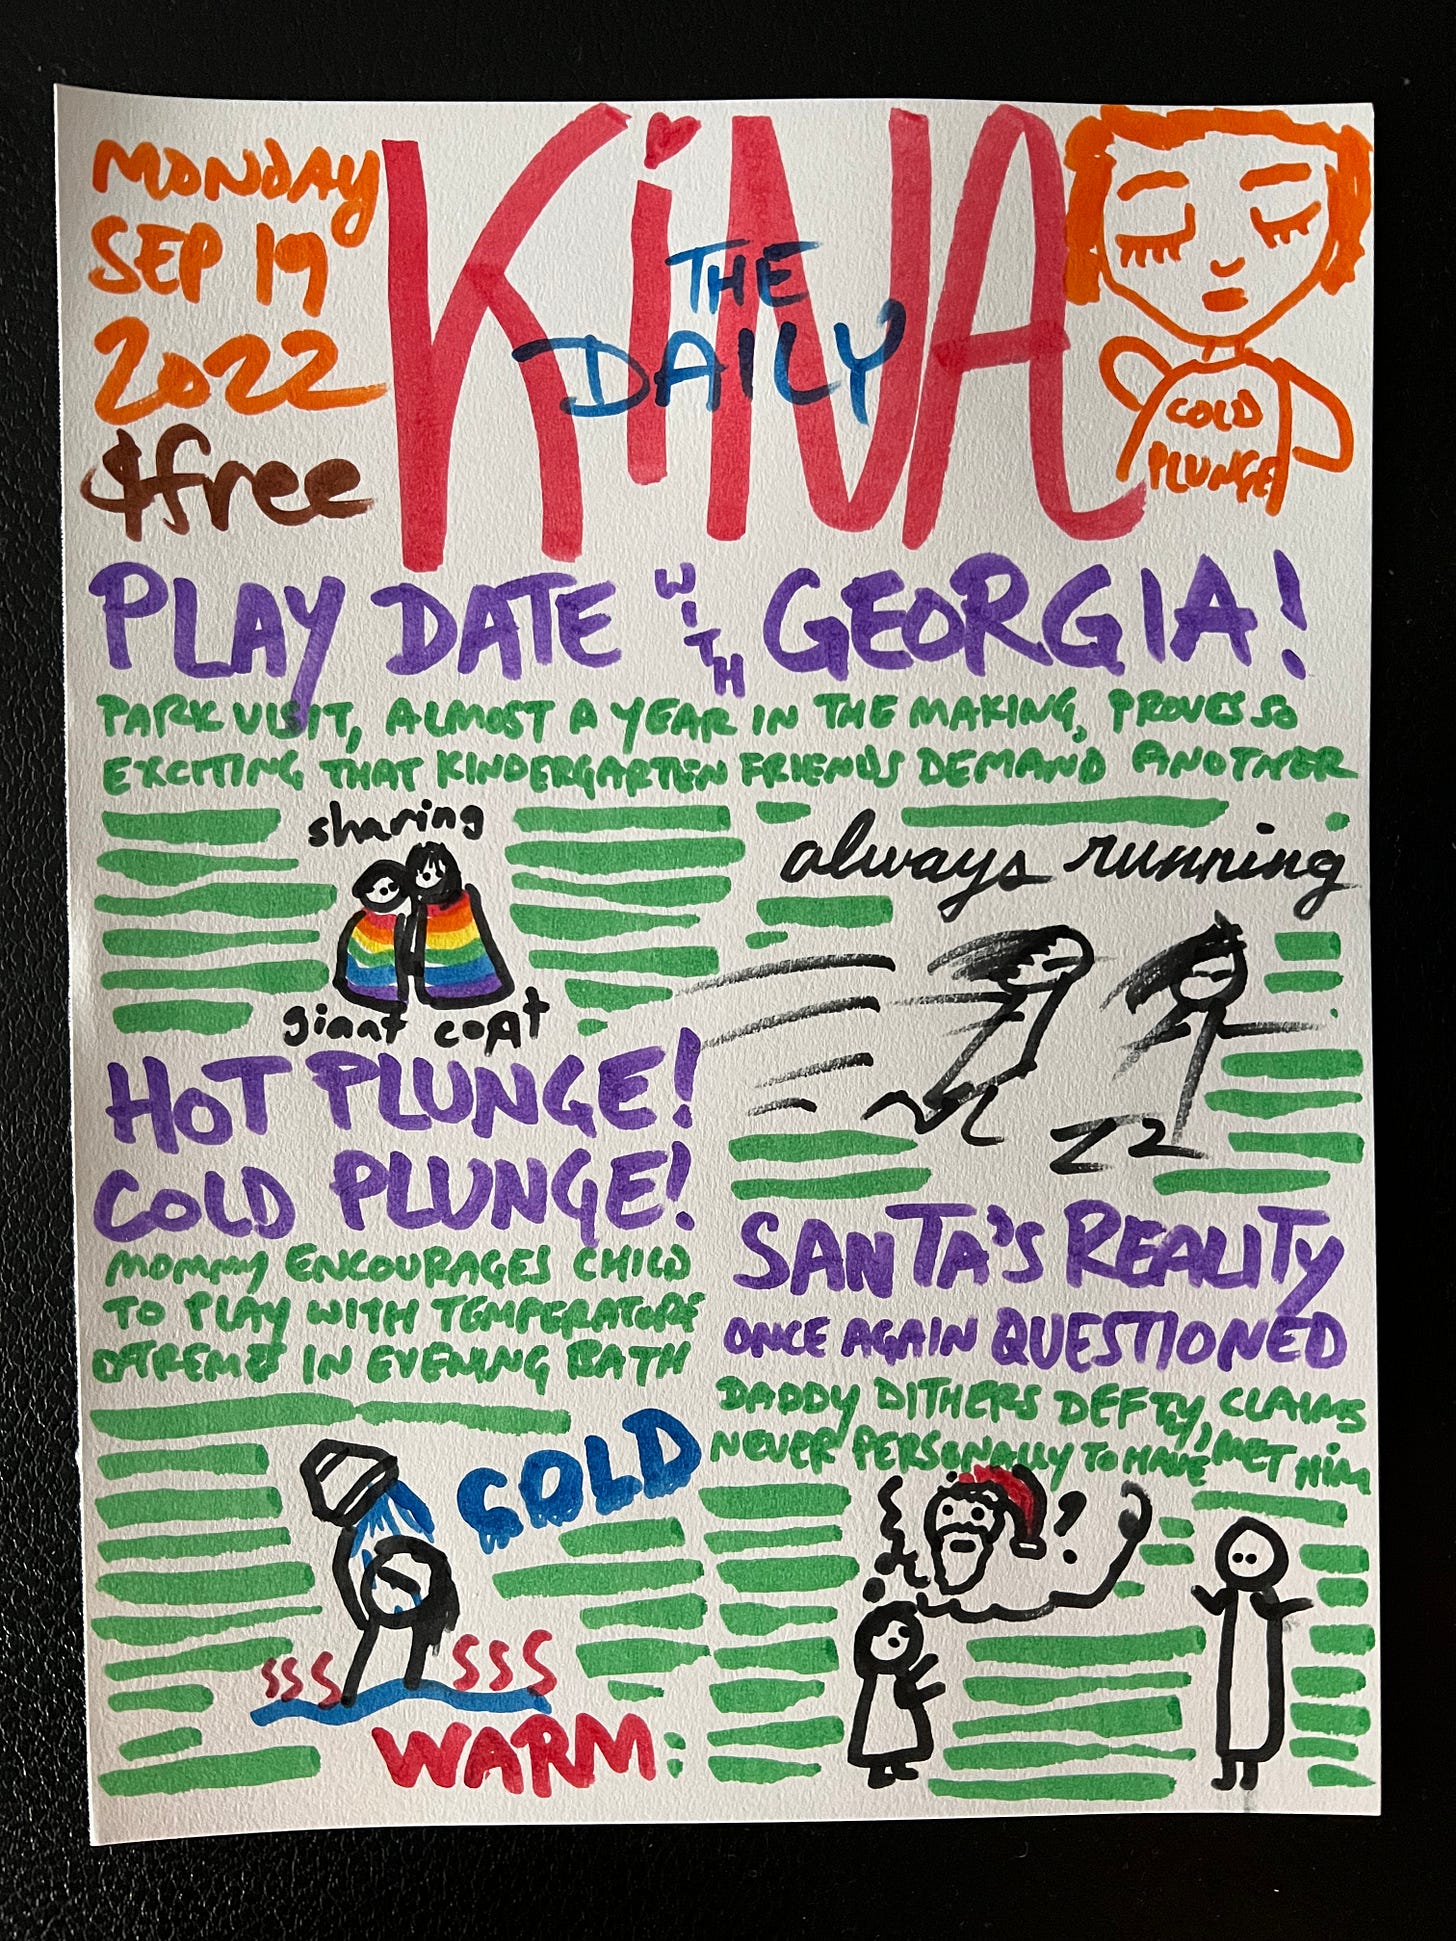 MONDAY
SEP 19
2022
$free
THE
DAILY
KiNA
COLD
PLUNGE
PLAY DATE WITH GEORGIA!
PARK VISIT, ALMOST A YEAR IN THE MAKING, PROVES SO
EXCITING THAT KINDERGARTEN FRIENDS DEMAND ANOTHER
sharing
giant coat
always running
HOT PLUNGE!
COLD PLUNGE!
MOMMY ENCOURAGES CHILD
TO PLAY WITH TEMPERATURE
EXTREMES IN EVENING BATH
COLD
SSS
SSS
WARM
SANTA'S REALITY
ONCE AGAIN QUESTIONED
DADDY DITHERS DEFTY, CLAIMS
NEVER PERSONALLY TO HAVE MET HIM
?